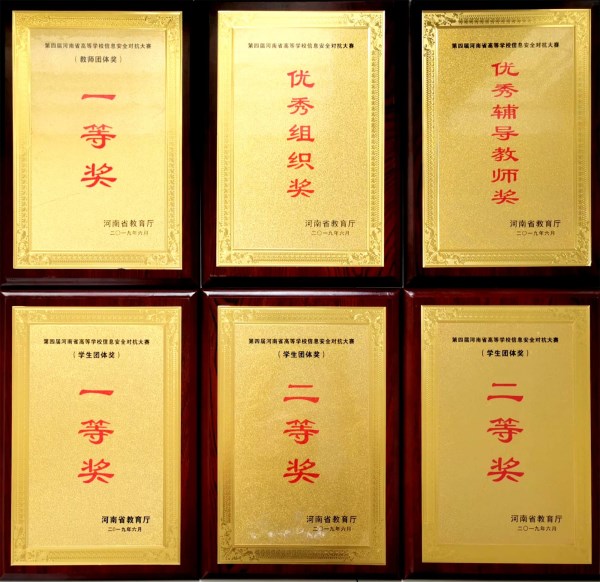 第四届河南省高等学校信息安全对抗大赛
（教师团体奖）
一等奖
河南省教育厅
二〇一九年六月
第四届河南省高等学校信息安全对抗大赛
优秀组织奖
河南省教育厅
二〇一九年六月
第四届河南省高等学校信息安全对抗大赛
优秀辅导教师奖
河南省教育厅
二〇一九年六月
第四届河南省高等学校信息安全对抗大赛
（学生团体奖）
一等奖
河南省教育厅
二〇一九年六月
第四届河南省高等学校信息安全对抗大赛
（学生团体奖）
二等奖
河南省教育厅
二〇一九年六月
第四届河南省高等学校信息安全对抗大赛
（学生团体奖）
二等奖
河南省教育厅
二〇一九年六月